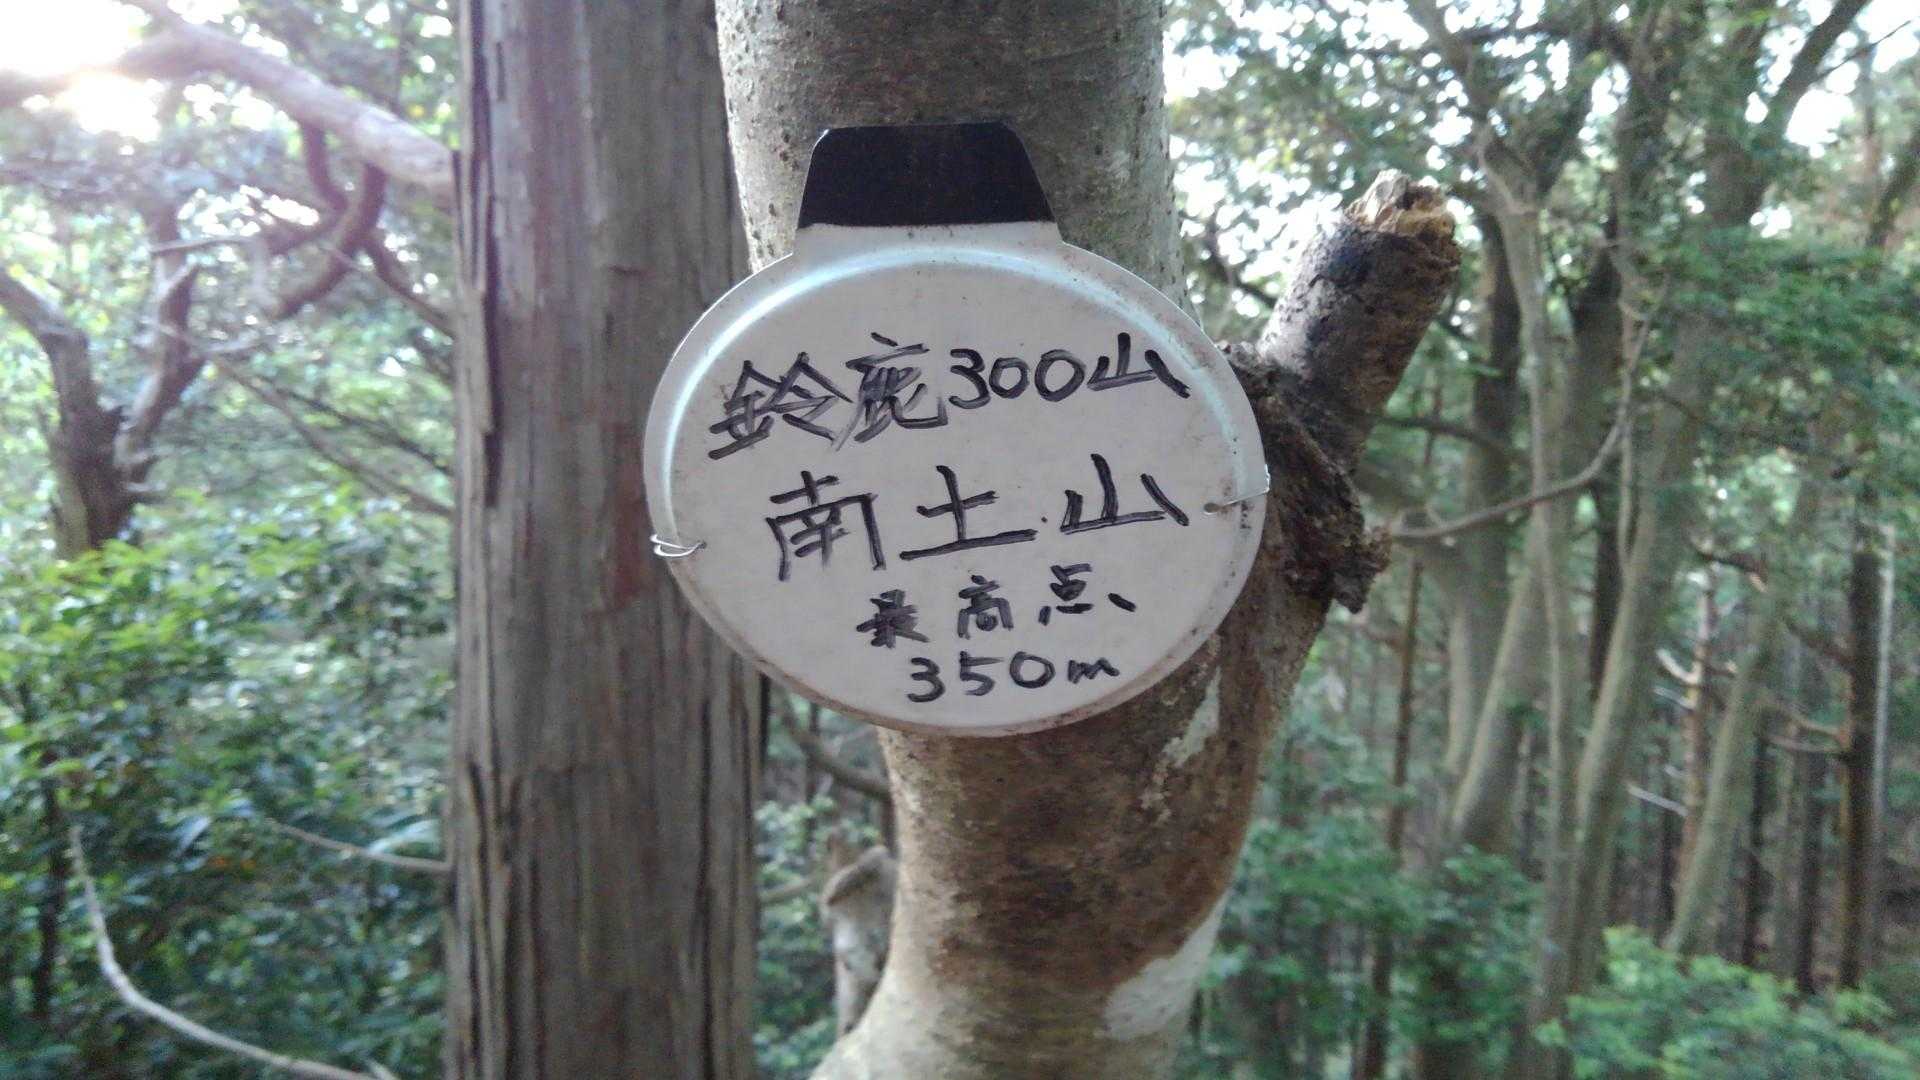 鈴鹿300山
南土山
最高点
350m